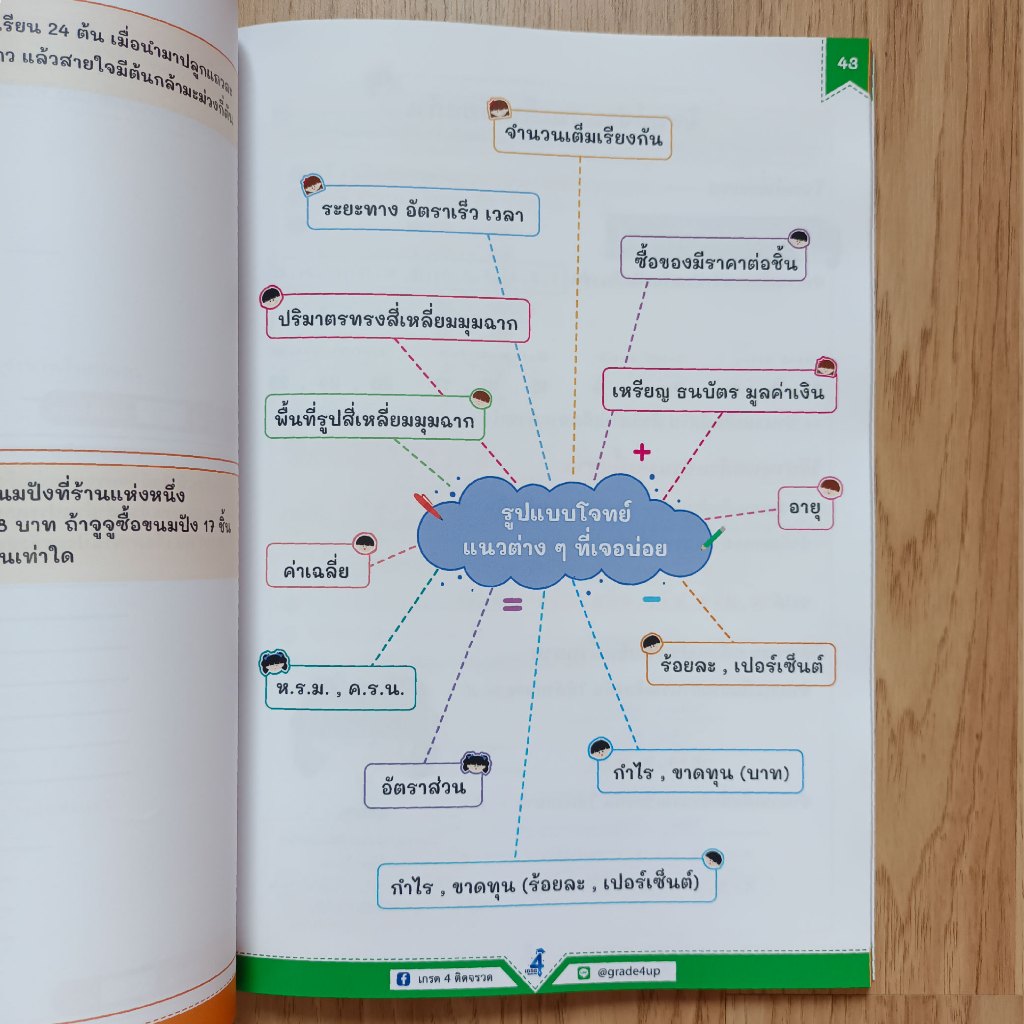 เรียน 24 ต้น เมื่อนำมาปลูกแถวละ
แล้วสายใจมีต้นกล้ามะม่วงกี่ต้น
นมปังที่ร้านแห่งหนึ่ง
8 บาท ถ้าจูจูซื้อขนมปัง 17 ชิ้น
นเท่าใด
43
จำนวนเต็มเรียงกัน
ระยะทาง อัตราเร็ว เวลา
ซื้อของมีราคาต่อชิ้น
ปริมาตรทรงสี่เหลี่ยมมุมฉาก
เหรียญ ธนบัตร มูลค่าเงิน
พื้นที่รูปสี่เหลี่ยมมุมฉาก
+
อายุ
รูปแบบโจทย์
แนวต่าง ๆ ที่เจอบ่อย
ค่าเฉลี่ย
=
-
ร้อยละ , เปอร์เซ็นต์
ห.ร.ม. , ค.ร.น.
กำไร , ขาดทุน (บาท)
อัตราส่วน
กำไร , ขาดทุน (ร้อยละ , เปอร์เซ็นต์)
เกรด 4 ติดจรวด
4
เกรด
@grade4up